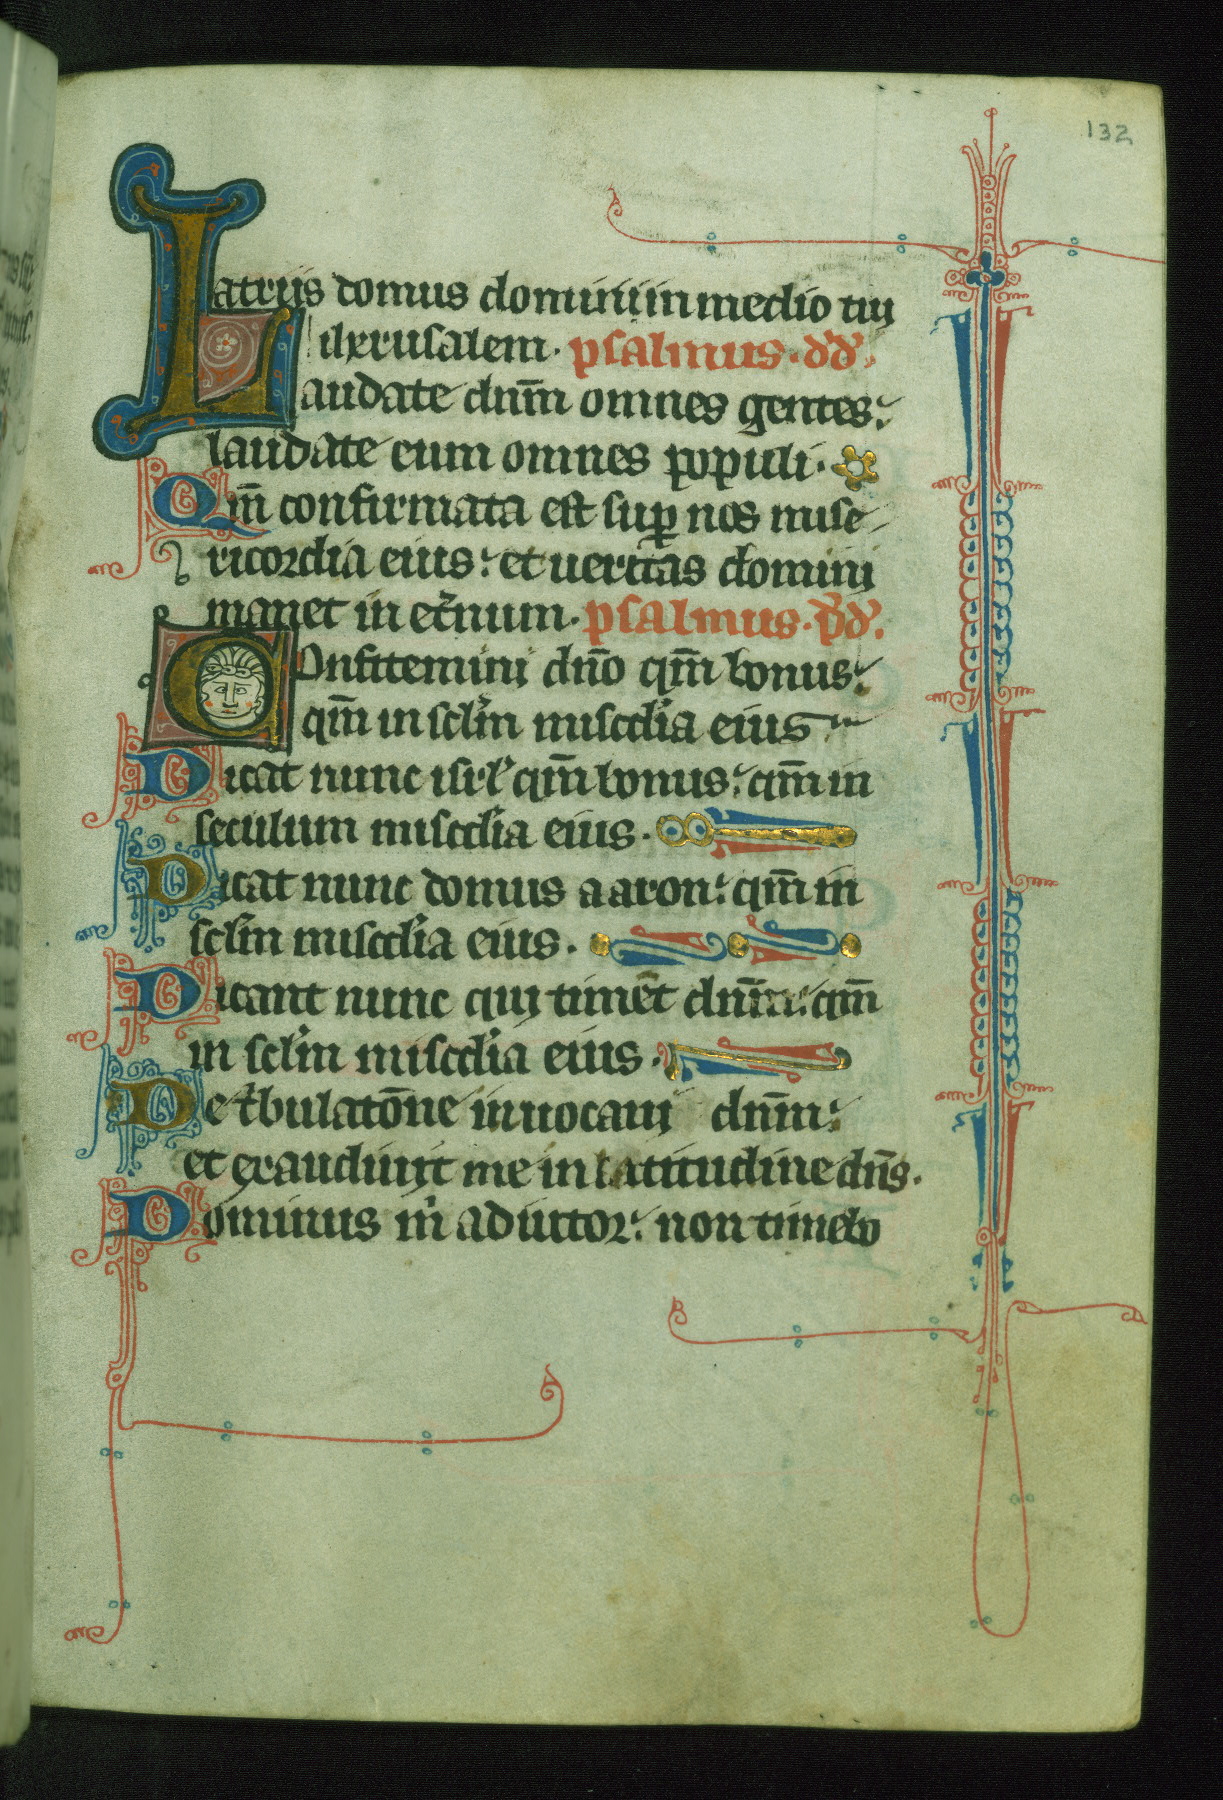 132
atrijs domus domini in medio tui
iherusalem. psalmus. dd̄.
Laudate dnm̄ omnes gentes:
laudate eum omnes populi.
Qm̄ confirmata est sup̄ nos mise
ricordia eius: et ueritas domini
manet in et̄num. psalmus. dd̄.
Confitemini dn̄o qm̄ bonus:
qm̄ in sclm̄ misc̄dia eius
Dicat nunc isrl̄ qm̄ bonus: qm̄ in
seculum misc̄dia eius.
Dicat nunc domus aaron: qm̄ in
sclm̄ misc̄dia eius.
Dicant nunc qui timēt dnm̄: qm̄
in sclm̄ misc̄dia eius.
De t̄bulatōne inuocaui dnm̄:
et exaudiuit me in latitudine dn̄s.
Dominus m̄ adiutor: non timebo